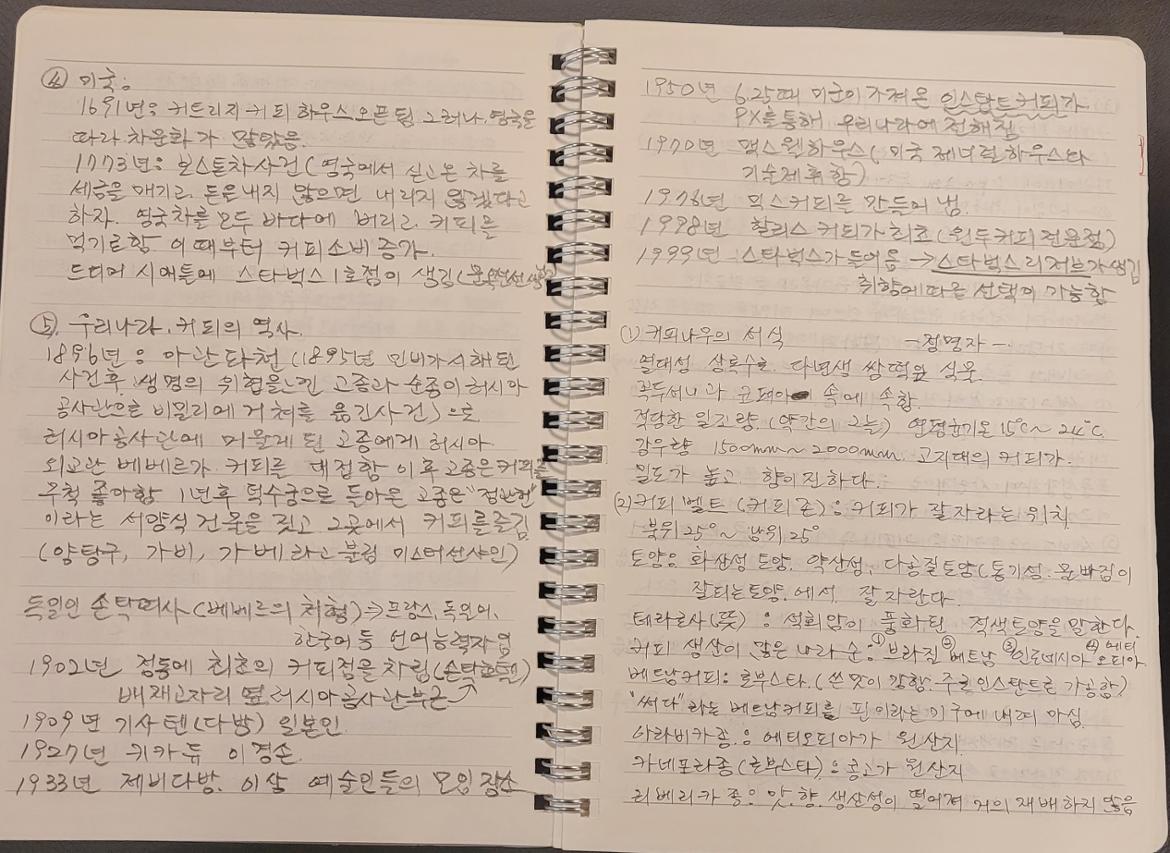 ④ 미국:
1691년: 커트리지 커피 하우스 오픈됨 그러나, 영국을
따라 차문화가 많았음.
1773년: 보스톤차사건(영국에서 싣고온 차를
세금을 매기고 돈을내지 않으면 내리지 않겠다고
하자. 영국차를 모두 바다에 버리고 커피를
먹기로함 이때부터 커피소비증가.
드디어 시애틀에 스타벅스 1호점이 생김
⑤. 우리나라. 커피의 역사.
1896년: 아관파천(1895년 민비가시해된
사건후, 생명의 위협을느낀 고종과 순종이러시아
공사관으로 비밀리에 거처를 옮긴사건)으로
러시아공사관에 머물게된 고종에게 러시아
외교관 베베르가 커피를 대접함 이후고종은커피를
무척 좋아함 1년후 덕수궁으로 돌아온 고종은 "정관헌"
이라는 서양식 건물을 짓고 그곳에서 커피를즐김
(양탕국, 가비, 가베라고 불검 미스터선샤인)
독일인 손탁여사(베베르의 처형)→프랑스, 독일어,
한국어등 언어능력자임
1902년 정동에 최초의 커피점을 차림(손탁호텔)
배재고자리 옆 러시아공사관부근
1909년 기사텐(다방) 일본인.
1927년 카카듀 이경손.
1933년 제비다방. 이상 예술인들의 모임장소
1950년 6.25때 미군이가져온 인스탄트커피가
PX를통해 우리나라에 전해짐
1970년 맥스웰하우스(미국 제너럴하우스와
기술제휴함)
1976년 믹스커피를 만들어 냄.
1998년 할리스 커피가최초(원두커피전문점)
1999년 스타벅스가들어옴 →스타벅스리저브가생김
취향에따른 선택이 가능함
(1) 커피나무의 서식 -정명자-
열대성 상록수로 다년생 쌍떡잎 식물.
꼭두서니과 코페아 속에 속함.
적당한 일조량.(약간의 그늘) 연평균기온 15℃~24℃.
강우량 1500mm~2000mm. 고지대의 커피가.
밀도가 높고 향이진하다.
(2)커피벨트(커피존): 커피가 잘자라는 위치
북위25°~남위25°
토양은 화산성토양. 약산성, 다공질토양(통기성.물빠짐이
잘되는토양.에서 잘자란다.
테라로사(뜻): 석회암이 풍화된 적색토양을말한다.
커피 생산이 많은 나라 순:①브라질②베트남③인도네시아④에티오피아
베트남커피는 로부스타.(쓴맛이 강함.주로인스탄트로 가공함)
"쓰다"라는 베트남커피를 핀이라는기구에 내려 마심.
아라비카종.은 에티오피아가 원산지.
카네포라종(로부스타):콩고가 원산지
리베리카종은 맛.향.생산성이 떨어져 거의재배하지않음